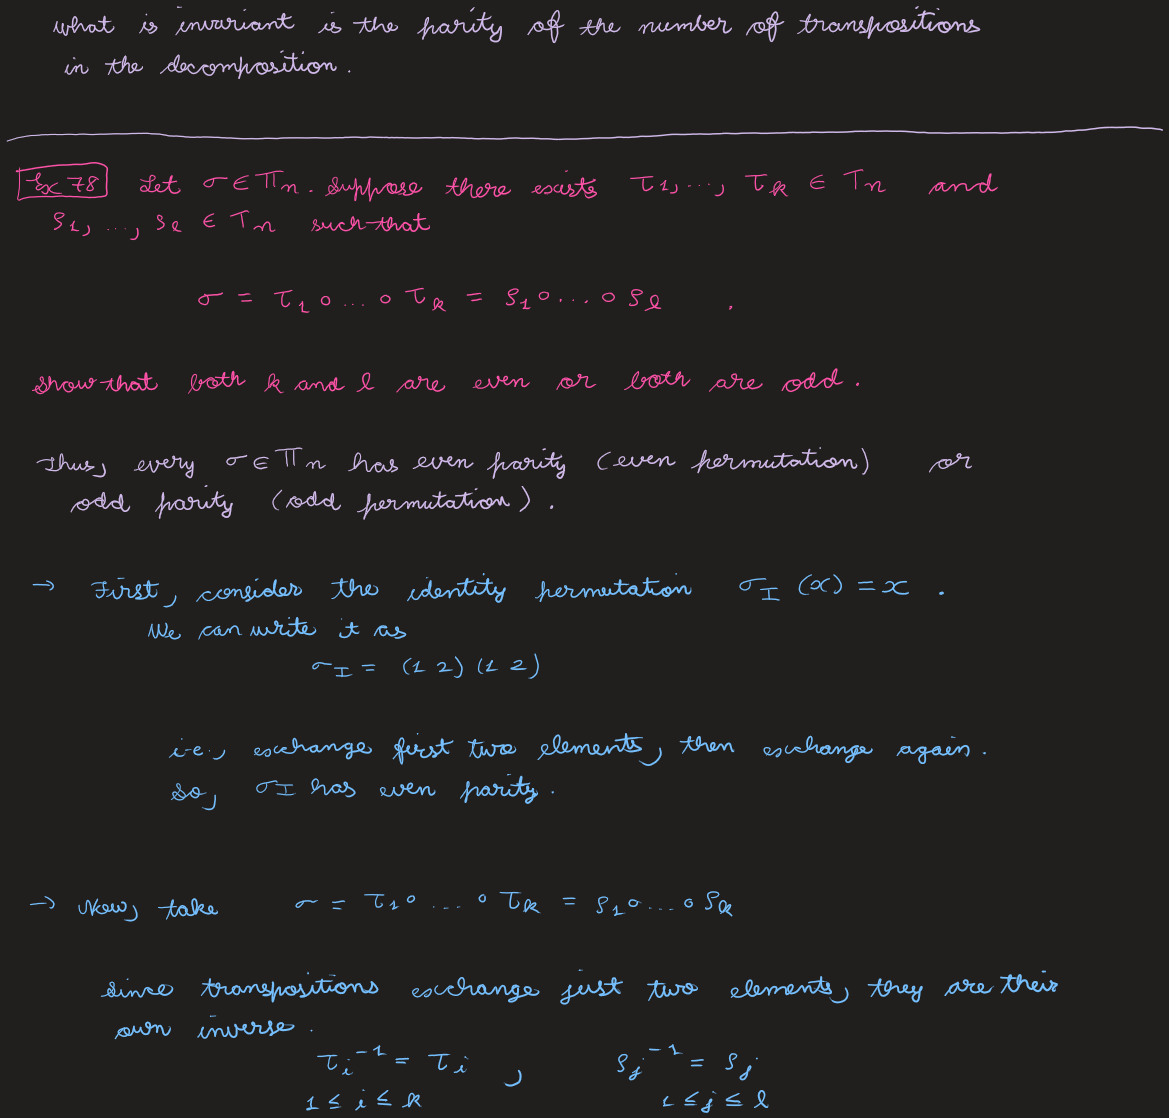 what is invariant is the parity of the number of transpositions
in the decomposition.
Ex 78 Let σ ∈ Πn. Suppose there exists τ1, ..., τk ∈ Tn and
ρ1, ..., ρl ∈ Tn such that
σ = τ1 ∘ ... ∘ τk = ρ1 ∘ ... ∘ ρl .
Show that both k and l are even or both are odd.
Thus, every σ ∈ Πn has even parity (even permutation) or
odd parity (odd permutation).
→ First, consider the identity permutation σI (x) = x .
We can write it as
σI = (1 2) (1 2)
i.e., exchange first two elements, then exchange again.
So, σI has even parity.
→ Now, take σ = τ1 ∘ ... ∘ τk = ρ1 ∘ ... ∘ ρk
Since transpositions exchange just two elements, they are their
own inverse.
τi⁻¹ = τi , ρj⁻¹ = ρj
1 ≤ i ≤ k 1 ≤ j ≤ l